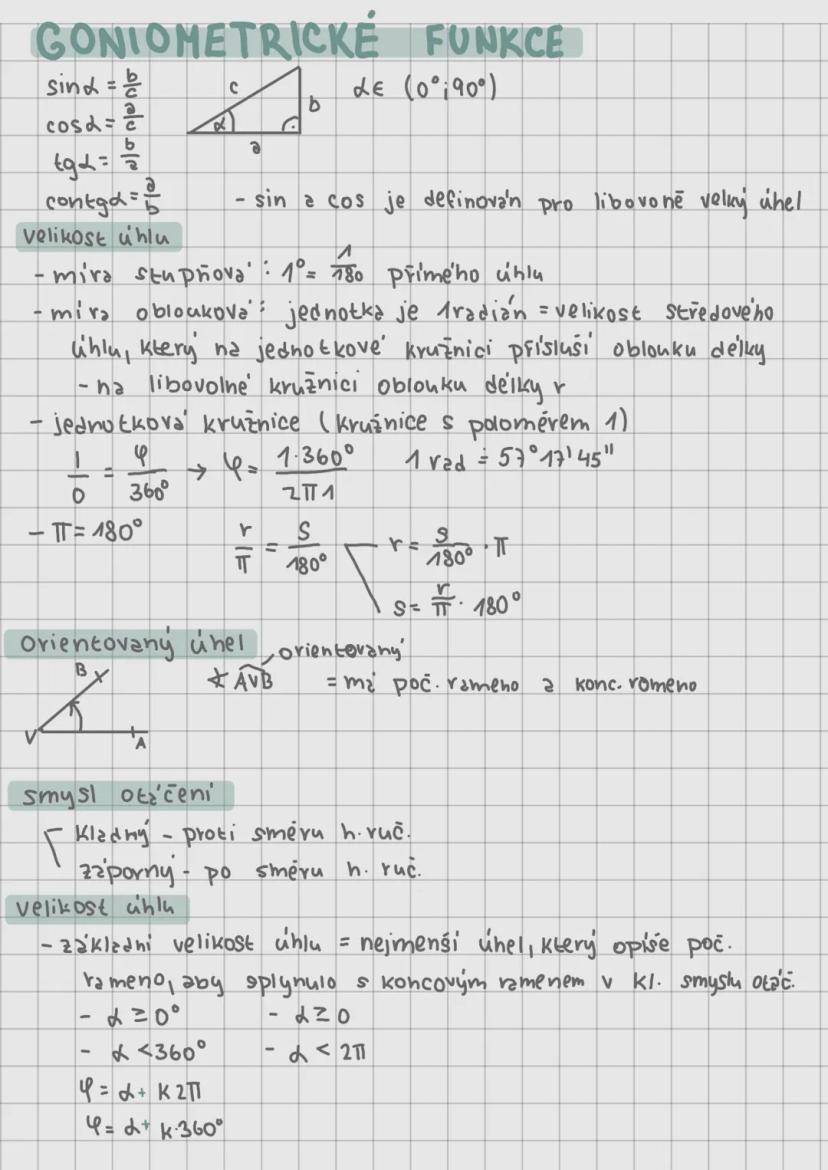 GONIOMETRICKÉ FUNKCE
sinα = b/c
cosα = a/c
tgα = b/a
contgα = a/b
c
b
α
a
α∈ (0°;90°)
- sin a cos je definován pro libovoně velký úhel
velikost úhlu
- míra stupňová : 1° = 1/180 přímého úhlu
- míra oblouková : jednotka je 1radián = velikost středového
úhlu, který na jednotkové kružnici přísluší oblouku délky
- na libovolné kružnici oblouku délky r
- jednotková kružnice (kružnice s poloměrem 1)
1/0 = φ/360° → φ = 1·360°/2π1 1 rad ≐ 57°17'45"
- π = 180° r/π = s/180° r = s/180° · π
s = r/π · 180°
Orientovaný úhel
orientovaný
B
V
A
∢ AVB = má poč. rameno a konc. romeno
smysl otáčení
kladný - proti směru h. ruč.
záporný - po směru h. ruč.
velikost úhlu
- základní velikost úhlu = nejmenší úhel, který opíše poč.
rameno, aby splynulo s koncovým ramenem v kl. smyslu otáč.
- α ≥ 0° - α ≥ 0
- α < 360° - α < 2π
φ = α + k2π
φ = α + k·360°